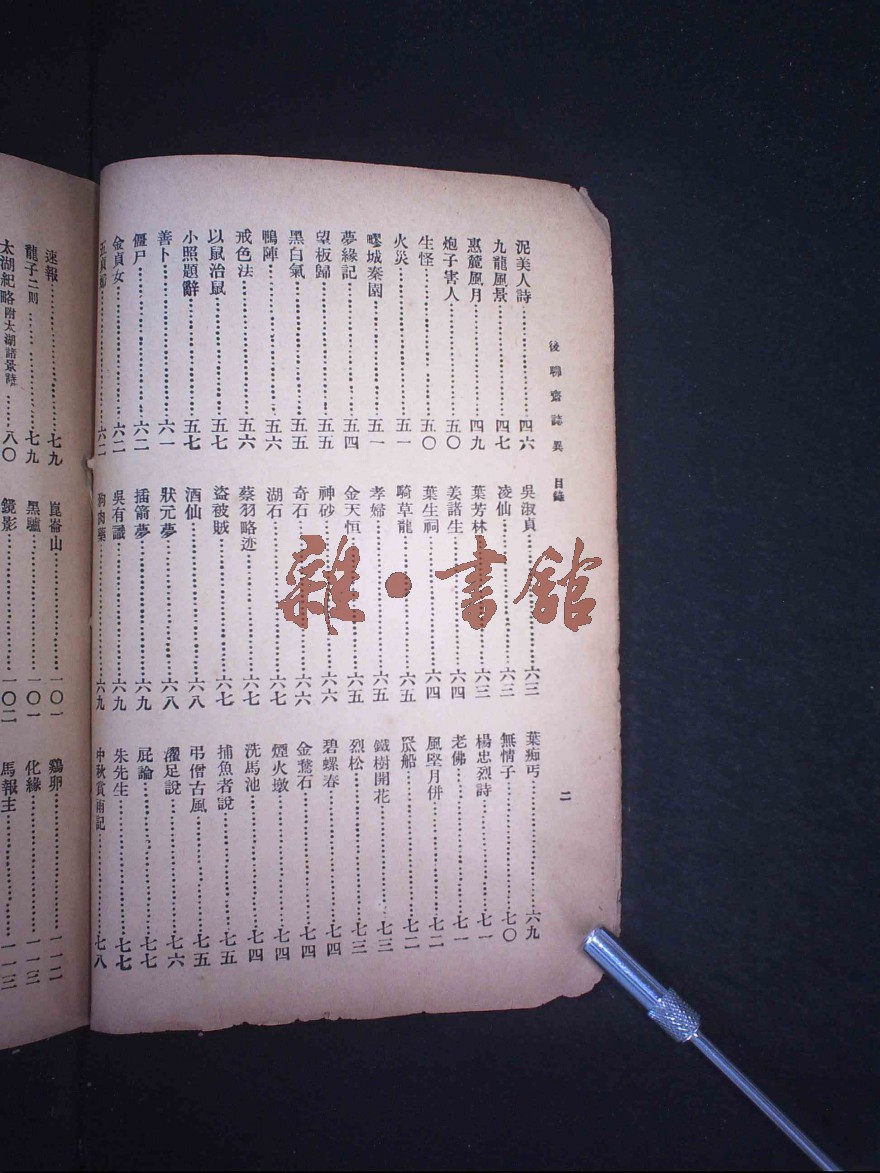 後聊齋誌異 目錄
二
泥美人詩……四六
九龍風景……四七
惠麓風月……四九
炮子害人……五〇
生怪……五〇
火災……五一
疁城秦園……五一
夢緣記……五四
望板歸……五五
黑白氣……五五
鴨陣……五六
戒色法……五六
以鼠治鼠……五七
小照題辭……五七
善卜……六一
僵尸……六二
金貞女……六二
六二
吳淑貞……六三
凌仙……六三
葉芳林……六三
姜諸生……六四
葉生祠……六四
騎草龍……六五
孝婦……六五
金天恒……六五
神砂……六六
奇石……六六
湖石……六七
蔡羽略迹……六七
盜被賊……六七
酒仙……六八
狀元夢……六八
插箭夢……六九
吳有讖……六九
肉藥……六九
葉痴丐……六九
無情子……七〇
楊忠烈詩……七一
老佛……七一
風堅月併……七二
船……七二
鐵樹開花……七三
烈松……七三
碧螺春……七四
金鰲石……七四
煙火墩……七四
洗馬池……七四
捕魚者說……七五
弔僧古風……七五
濯足說……七六
屁論……七七
朱先生……七七
中秋賞雨記……七八
速報……七九
龍子二則……七九
太湖紀略附太湖諸景詩……八〇
崑崙山……一〇一
黑驢……一〇一
鏡影……一〇二
鷄卵……一一二
化緣……一一三
馬報主……一一三
雜·書館